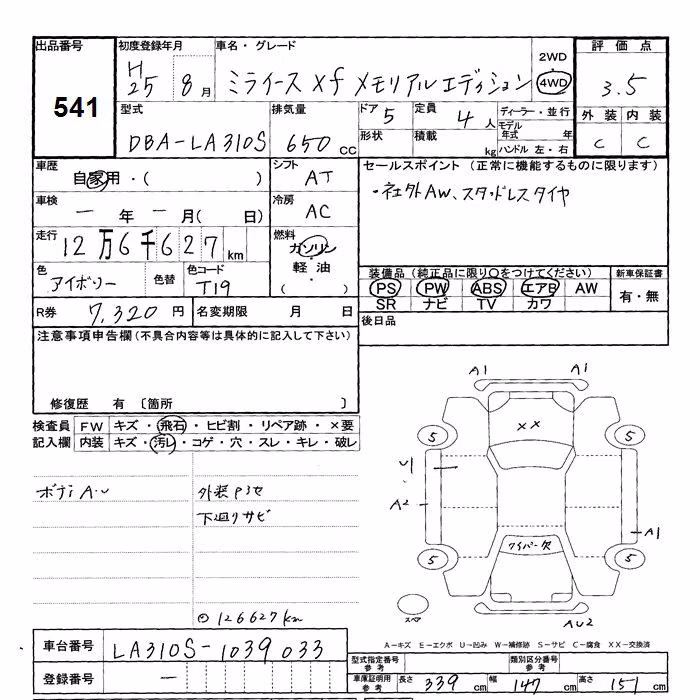 出品番号
541
初度登録年月
H25 8月
車名・グレード
ミライース Xf メモリアルエディション
2WD
4WD
評価点
3.5
外装 内装
C C
型式
DBA-LA310S
排気量
650 cc
ドア 5
形状
定員 4人
積載 kg
ディーラー・並行
モデル年式 年
ハンドル 左・右
車歴
自家用・( )
シフト
AT
セールスポイント (正常に機能するものに限ります)
・社外AW、スタッドレスタイヤ
車検
ー年ー月( 日)
冷房
AC
走行
12万6千627km
燃料
ガソリン
軽油
・( )
色
アイボリー
色替
色コード
T19
装備品(純正品に限り○をつけてください)
PS PW ABS エアB AW
SR ナビ TV カワ
新車保証書
有・無
R券 7,320円
名変期限 月 日
後日品
注意事項申告欄(不具合内容等は具体的に記入して下さい)
修復歴 有 〔箇所 〕
検査員記入欄
FW キズ・飛石・ヒビ割・リペア跡・×要
内装 キズ・汚レ・コゲ・穴・スレ・キレ・破レ
ボディA・U
外装
下廻りサビ
126627km
A1 A1
XX
5 5
U1
A2
A1
ワイパー欠
5 5
スペア
AU2
A-キズ E-エクボ U-凹み W-補修跡 S-サビ C-腐食 XX-交換済
車台番号 LA310S-1039033
登録番号 ー
型式指定番号
参考
類別区分番号
参考
車庫証明用
参考
長さ 339cm 幅 147cm 高さ 151cm